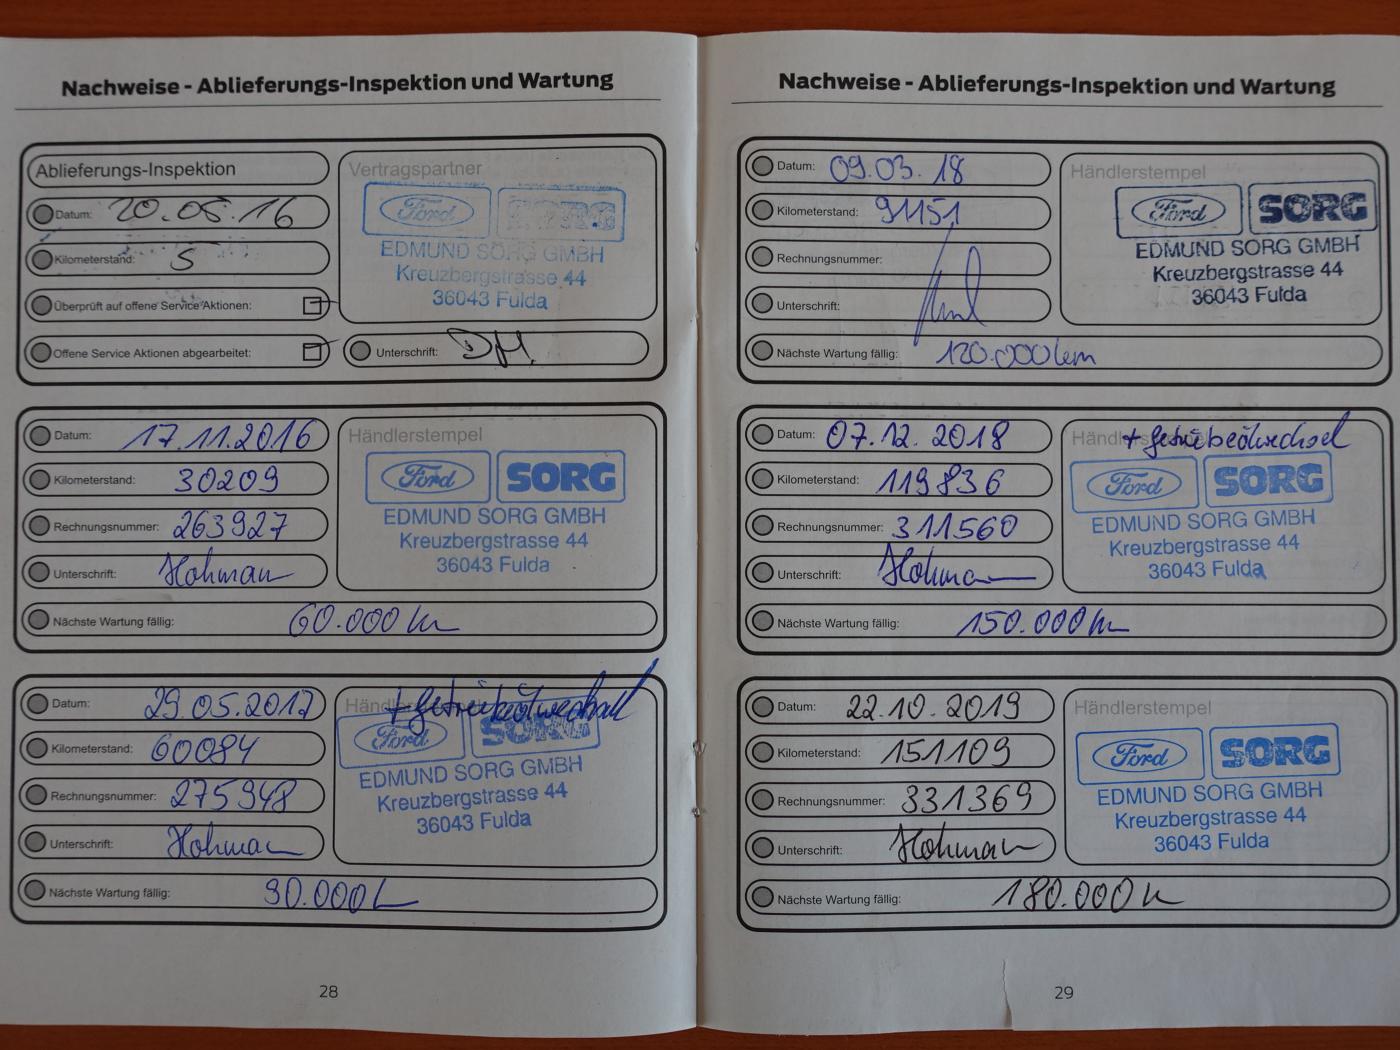 Nachweise - Ablieferungs-Inspektion und Wartung
Ablieferungs-Inspektion
Datum: 20.05.16
Kilometerstand: 5
Überprüft auf offene Service Aktionen:
Offene Service Aktionen abgearbeitet:
Vertragspartner
Ford SORG
EDMUND SORG GMBH
Kreuzbergstrasse 44
36043 Fulda
Unterschrift: DM.
Datum: 17.11.2016
Kilometerstand: 30209
Rechnungsnummer: 263927
Unterschrift: Hohman
Nächste Wartung fällig: 60.000 km
Händlerstempel
Ford SORG
EDMUND SORG GMBH
Kreuzbergstrasse 44
36043 Fulda
Datum: 29.05.2017
Kilometerstand: 60084
Rechnungsnummer: 275948
Unterschrift: Hohman
Nächste Wartung fällig: 90.000
+ Getriebeölwechsel
Ford SORG
EDMUND SORG GMBH
Kreuzbergstrasse 44
36043 Fulda
28
Nachweise - Ablieferungs-Inspektion und Wartung
Datum: 09.03.18
Kilometerstand: 91151
Rechnungsnummer:
Unterschrift:
Nächste Wartung fällig: 120.000 km
Händlerstempel
Ford SORG
EDMUND SORG GMBH
Kreuzbergstrasse 44
36043 Fulda
Datum: 07.12.2018
Kilometerstand: 119836
Rechnungsnummer: 311560
Unterschrift: Hohman
Nächste Wartung fällig: 150.000 km
+ Getriebeölwechsel
Ford SORG
EDMUND SORG GMBH
Kreuzbergstrasse 44
36043 Fulda
Datum: 22.10.2019
Kilometerstand: 151109
Rechnungsnummer: 331369
Unterschrift: Hohman
Nächste Wartung fällig: 180.000 k
Händlerstempel
Ford SORG
EDMUND SORG GMBH
Kreuzbergstrasse 44
36043 Fulda
29